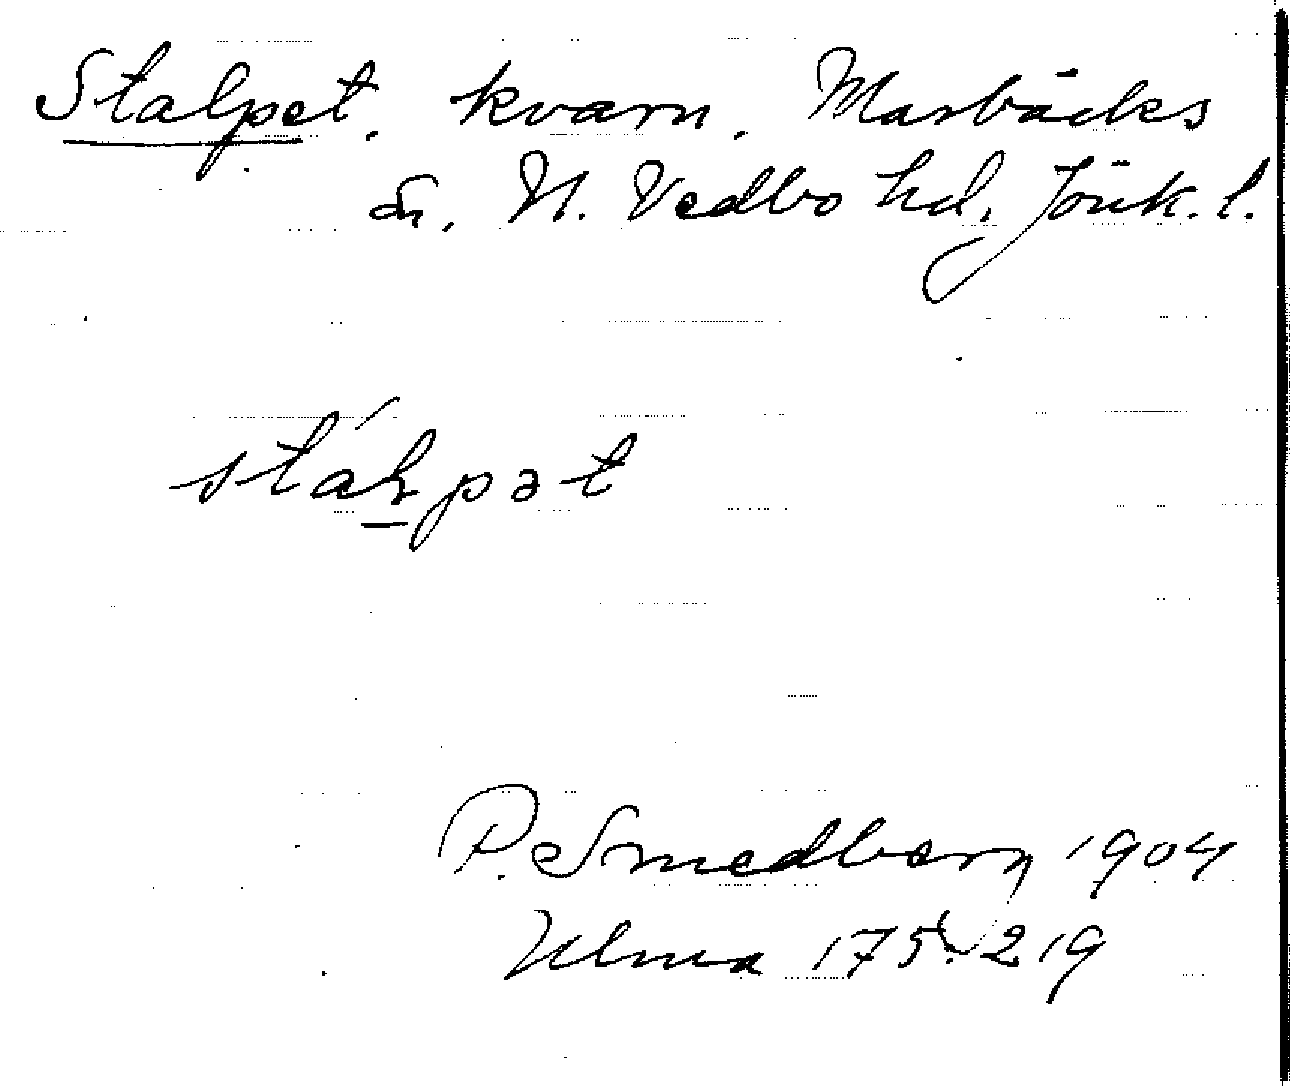 Stalpet, kvarn, Marbäcks
sn, N. Vedbo hd, Jönk. l.
stáɫpət
P. Smedberg 1904
Ulma 175:219